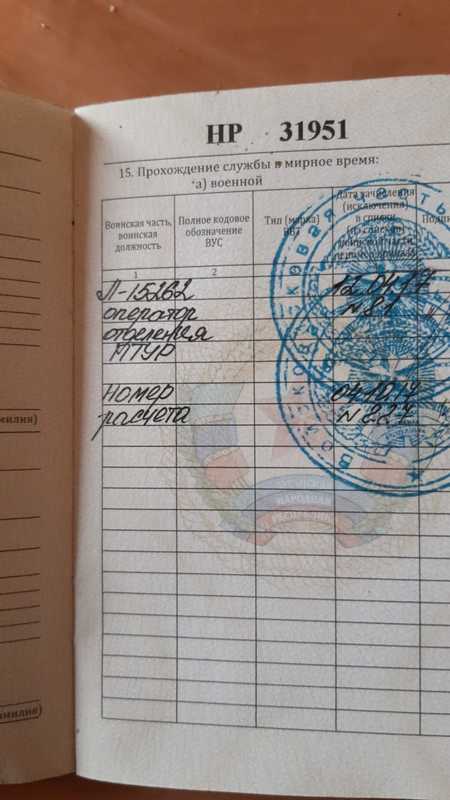 НР 31951
15. Прохождение службы в мирное время:
а) военной
Воинская часть, воинская должность
Полное кодовое обозначение ВУС
Тип (марка) ВВТ
Дата зачисления (исключения) в списки
1
2
П-15262
12.04.17
оператор
N 81
отделения
МТУР
Номер
04.10.17
расчета
N 227
милия)
НАРОДНАЯ
амилия)